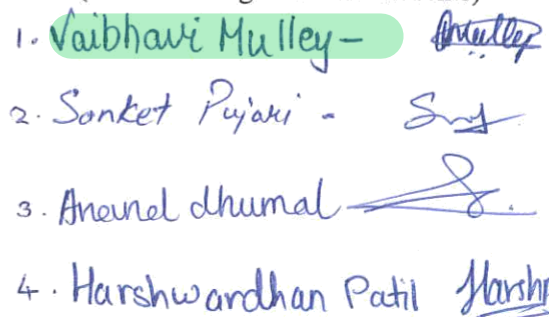 1. Vaibhavi Mulley - Mulley
2. Sanket Pujari -
3. Anand dhumal
4. Harshwardhan Patil Harsh